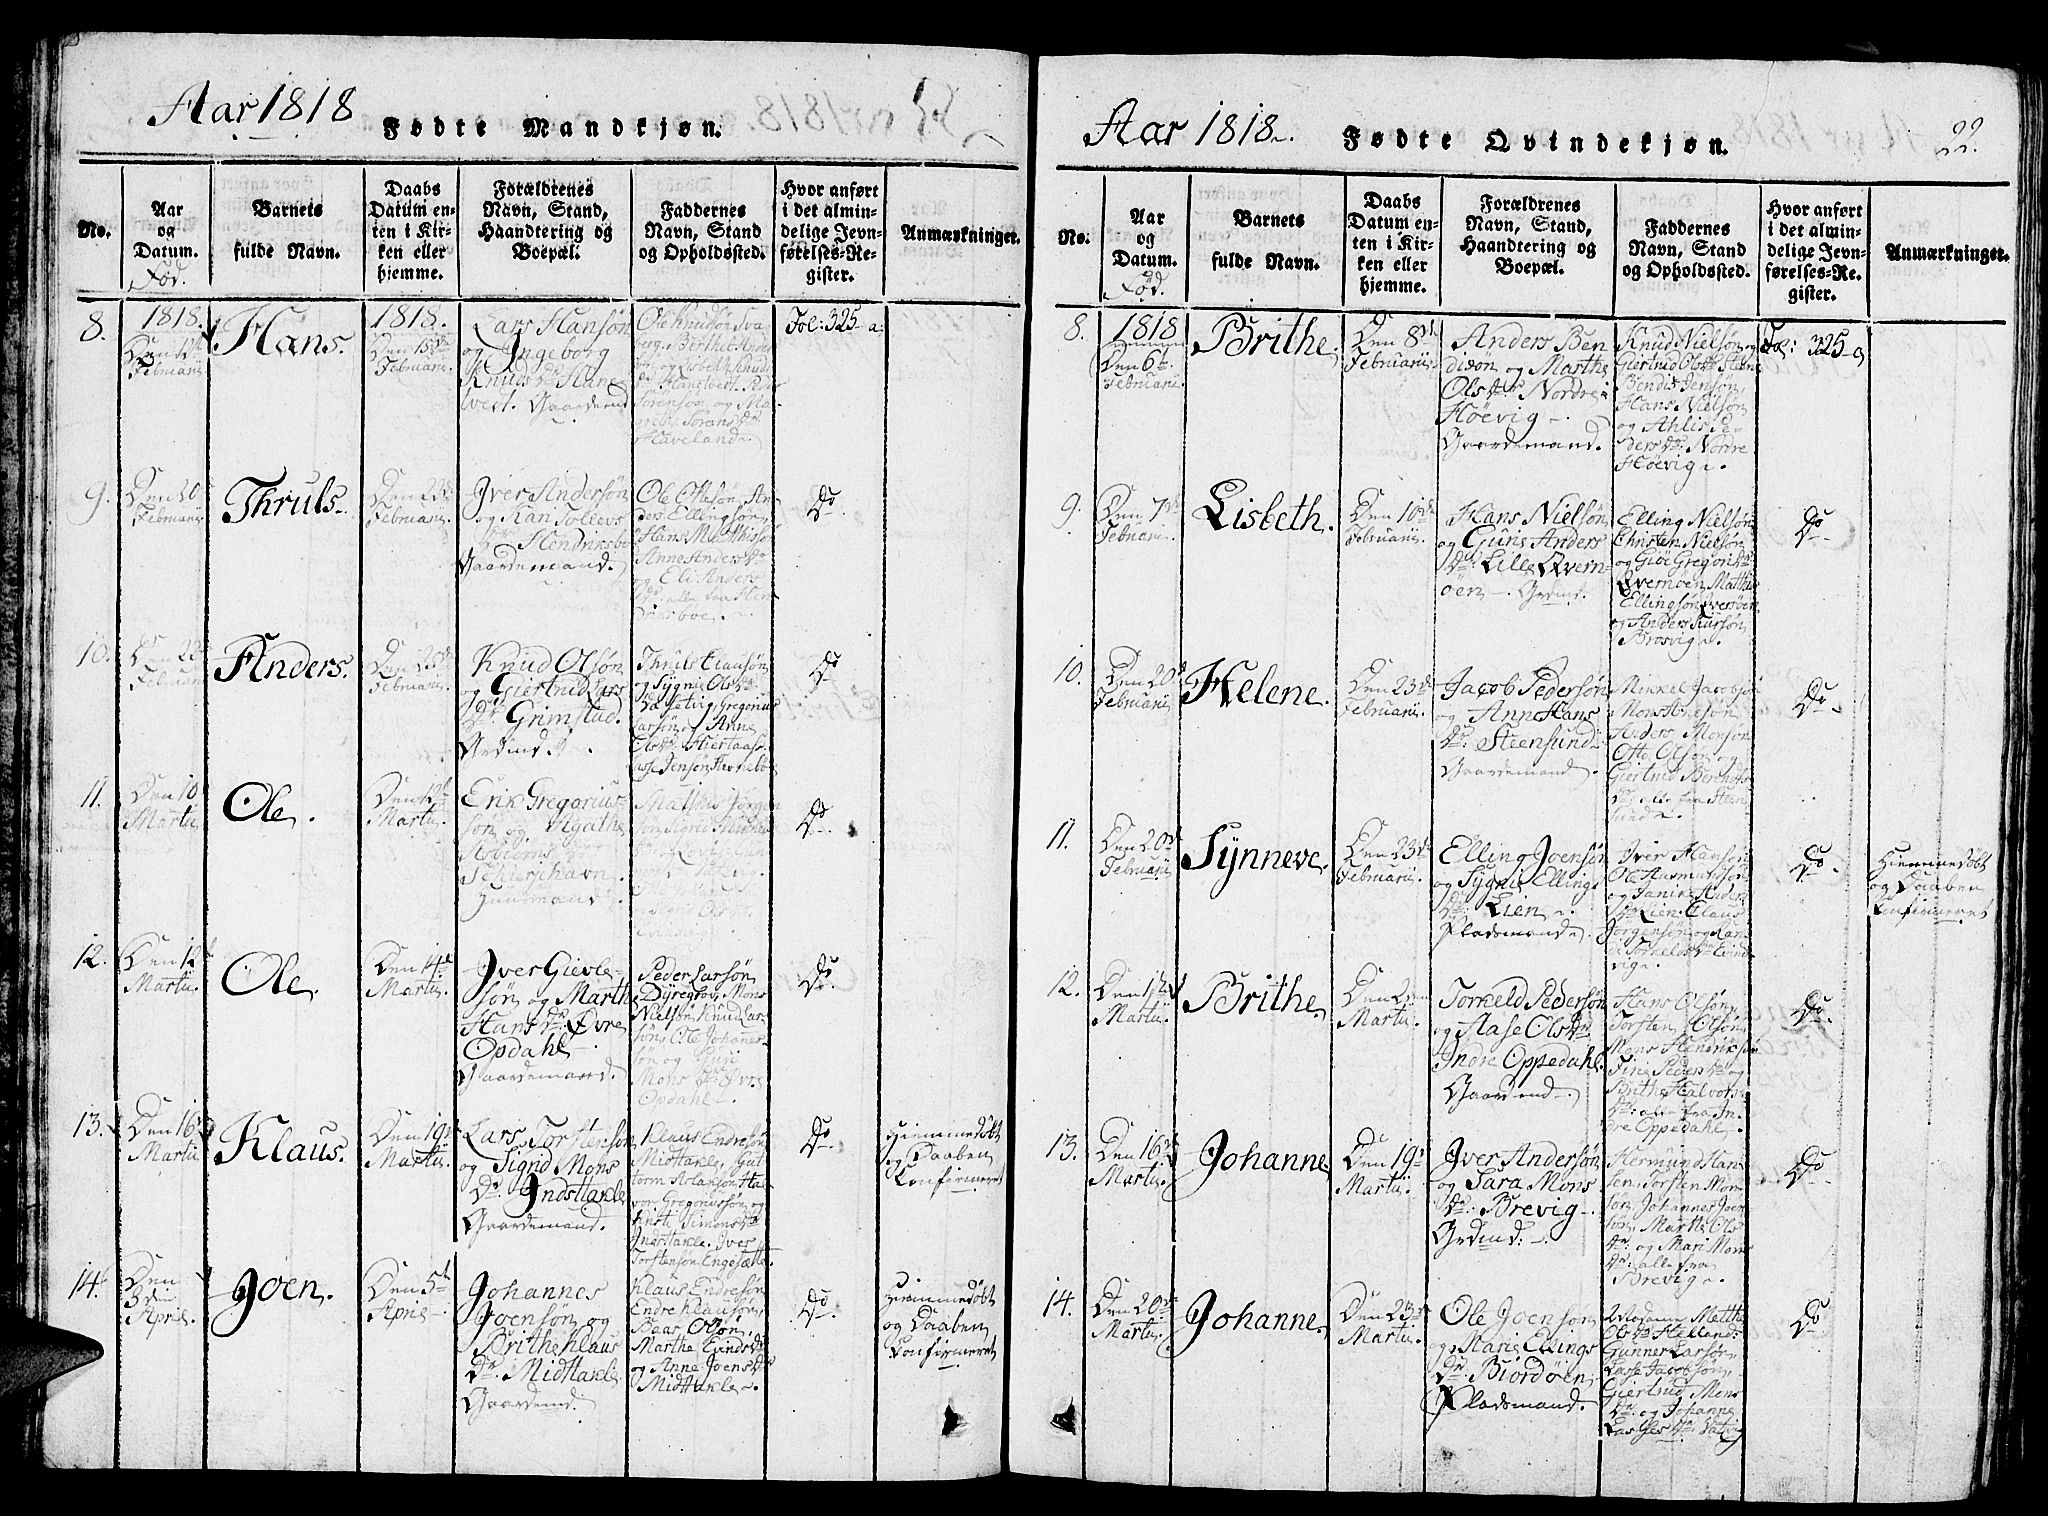 Aar 1818
Fødte Mandkjøn.
No.
Aar
og
Datum.
Fød.
Barnets
fulde Navn.
Daabs
Datum en-
ten i Kir-
ken eller
hjemme.
Forældrenes
Navn, Stand,
Haandtering og
Boepæl.
Faddernes
Navn, Stand
og Opholdssted.
Hvor anført
i det almin-
delige Jevn-
førelses-Re-
gister.
Anmærkninger.
8.
1818.
Februarii
Hans.
1818.
Den 15de
Februarii.
Lars Hansøn
og Ingeborg
Knuds Dr.
Gaardmd
Ole Knudsøn
Sørensøn og
Haveland.
Fol: 325 a.
9.
Den 20
Februarii
Thruls.
Den 22de
Februarii.
Iver Andersøn
og Kari Tollevs
Dr. Hendriksbo
Gaardemand.
Ole Ottesøn, An-
ders Ellingsøn,
Hans Mathissøn
Anne Anders Dr.
og Eli Anders
Dr. alle fra Hen-
driksboe.
Do.
10.
Den 22
Februarii
Anders.
Den 25de
Februarii.
Knud Olsøn
og Giertrud Lars
Dr. Grimstad.
Grdmd.
Thruls Clausøn
og Sygni Ols Dr.
Gregorius
Larsøn og Anne
Ols Dr. Hiertaas.
Lasse Jensøn
Do
11.
Den 10
Martii
Ole.
Den 12te
Martii.
Erik Gregorius-
søn og Agathe
Schiershavn.
Huusmand.
Mathis Jørgen
søn, Sigrid
og Sigrid Ols Dr.
Do.
12.
Den 12t
Martii.
Ole.
Den 14de
Martii.
Iver Gievle-
søn og Marthe
Hans Dr. Øvre
Opdahl.
Gaardemand.
Peder Larsøn
Dyregrov, Mons
Nielsøn, Knud Lar-
søn, Ole Johannes-
søn og Guri
Mons Dr. Øvre
Opdahl.
Do.
13.
Den 16de
Martii
Klaus.
Den 19de
Martii.
Lars Torstensøn
og Sigrid Mons
Dr. Indst.Takle
Gaardemand.
Klaus Endresøn
MidtTakle, Gut
torm Arlansøn Hal
vor Gregoriussøn og
Kristi Simons Dr.
Indst.Takle. Iver
Torstensøn Engesætte.
Do
Hiemmedøbt
og Daaben
Confirmeret
14.
Den
3die
April.
Joen.
Den 5te
April.
Johannes
Joensøn og
Brithe Klaus
Dr. MidtTakle.
Gaardmd.
Klaus Endresøn
Endre Klausøn,
Baar Olsøn,
Marthe Eunds Dr.
og Anne Joens Dr.
MidtTakle.
Do.
Hiemmedøbt
og Daaben
Confirmeret
Aar 1818.
Fødte Qvindekjøn.
22.
No.
Aar
og
Datum.
Fød.
Barnets
fulde Navn.
Daabs
Datum en-
ten i Kir-
ken eller
hjemme.
Forældrenes
Navn, Stand,
Haandtering og
Boepæl.
Faddernes
Navn, Stand
og Opholdssted.
Hvor anført
i det almin-
delige Jevn-
førelses-Re-
gister.
Anmærkninger.
8.
1818
Den 6te
Februarii.
Brithe.
Den 8de
Februarii.
Anders Ben
disøn og Marthe
Ols Dr. Nordre
Høevig.
Gaardemand.
Knud Nielsøn og
Giertrud Ols Dr.
Bendis Jensøn,
Hans Nielsøn,
og Ahlis Pe-
ders Dr. Nordre
Høevig.
Fol: 325 a
9.
Den 7de
Februarii.
Lisbeth.
Den 10de
Februarii.
Hans Nielsøn
og Guris Anders
Dr. Lille Qvern-
øen. Grdmd.
Elling Nielsøn
Christen Nielsøn
og Giøe Gregorii Dr.
Qvernøen, Mathis
Ellingsøn Iversøen
og Anders
Brosvig.
Do
10.
Den 20de
Februarii
Helene.
Den 23de
Februarii.
Jacob Pedersøn
og Anne Hans
Dr. Steensund.
Gaardemand.
Mikkel Jacobsøn
Mons Arnesøn,
Anders Monsøn
Otte Olsøn og
Giertrud
Dr. alle fra Steen
sund.
Do.
11.
Den 20de
Februarii
Synneve.
Den 23de
Februarii.
Elling Joensøn
og Sygni Ellings
Dr. Lien.
Pladsmand.
Iver Hansøn
Ole Rasmussøn
og Janike Anders
Dr. Lien. Claus
Jørgensøn og Kari
Torkels Dr. Eivind
vig.
Do.
Hiemmedøbt
og Daaben
Confirmeret
12.
Martii.
Brithe.
Martii.
Torkeld Pedersøn
og Aase Ols Dr.
Indre Oppedahl.
Gaardmd.
Hans Olsøn,
Torsten Olsøn
Mons Hendriksøn
Peders Dr. og
Brithe Halvors
Dr. alle fra In-
dre Oppedahl.
Do.
13.
Den 16de
Martii.
Johanne.
Den 19de
Martii.
Iver Andersøn
og Sara Mons
Dr. Brevig.
Grdmd.
Hermund Han-
sen, Torsten Mon-
søn, Johannes Joen-
søn, Marthe Ols
Dr. og Mari Mons
Dr. alle fra
Brevig.
Do
14.
Den 20de
Martii.
Johanne.
Den 23de
Martii.
Ole Joensøn
og Marie Ellings
Dr. Biordøen,
Pladsmand.
Madame Metthe
Ols Dr. Helland.
Gunner Larsøn,
Lasse Jacobsøn,
Giertrud Mons
Dr. og Johanne
Do